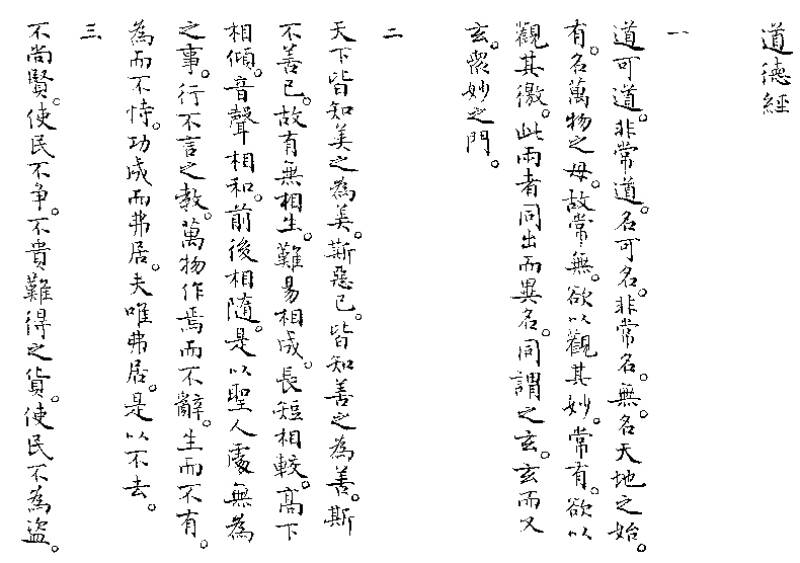 道德經
一
道可道。非常道。名可名。非常名。無。名天地之始。
有。名萬物之母。故常無。欲以觀其妙。常有。欲以
觀其徼。此兩者同出而異名。同謂之玄。玄而又
玄。眾妙之門。
二
天下皆知美之為美。斯惡已。皆知善之為善。斯
不善已。故有無相生。難易相成。長短相較。高下
相傾。音聲相和。前後相隨。是以聖人處無為
之事。行不言之教。萬物作焉而不辭。生而不有。
為而不恃。功成而弗居。夫唯弗居。是以不去。
三
不尚賢。使民不爭。不貴難得之貨。使民不為盜。